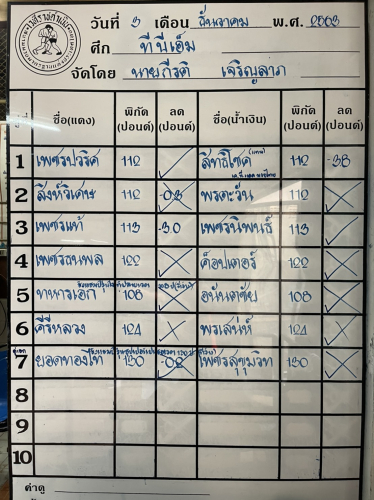 วันที่ 3 เดือน ธันวาคม พ.ศ. 2563
ศึก ทีบีเอ็ม
จัดโดย นายกีรติ เจริญลาภ
คู่ที่ ชื่อ(แดง) พิกัด (ปอนด์) ลด (ปอนด์) ชื่อ(น้ำเงิน) พิกัด (ปอนด์) ลด (ปอนด์)
1 เพชรปวริศ 112 สิทธิโชค (แทน) 112 -38
2 สิงห์วิเศษ 112 -03 พรตะวัน 112
3 เพชรแท้ 113 -30 เพชรนิพนธ์ 113
4 เพชรธนพล 122 ค็อปเตอร์ 122
5 ทหารเอก 108 อนันตชัย 108
6 คีรีหลวง 124 พรเสน่ห์ 124
7 ยอดทองไท 130 -02 เพชรสุขุมวิท 130
8
9
10
ค่าดู